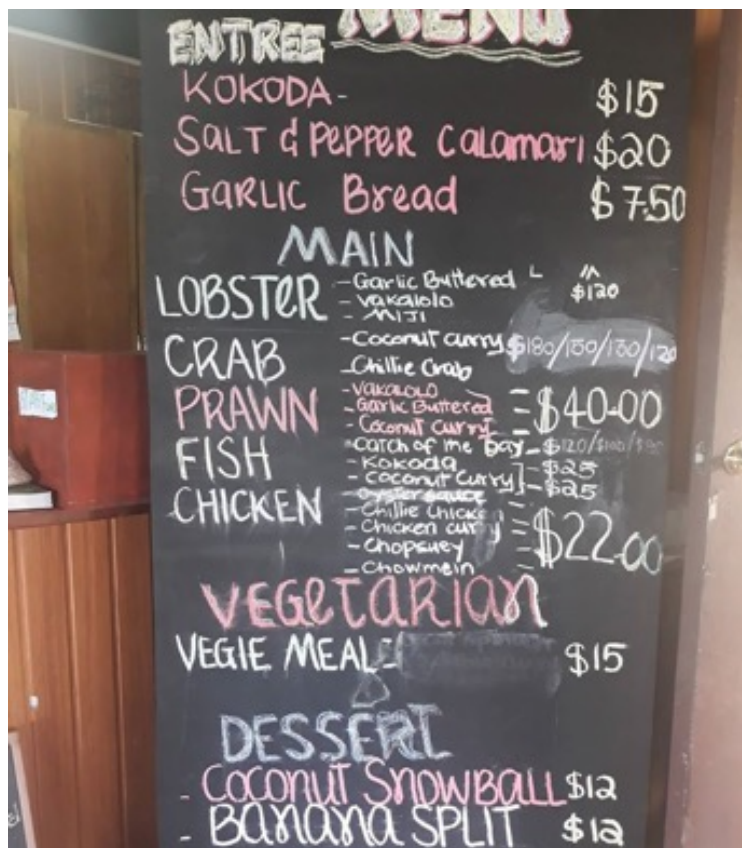 MENU
ENTREE
KOKODA- $15
SALT & PEPPER CALAMARI $20
GARLIC Bread $7.50
MAIN
LOBSTER - Garlic Buttered $120
- Vakalolo
- MIJI
CRAB - Coconut curry $180/150/130/120
- Chillie Crab
PRAWN - VAKALOLO
- Garlic Buttered = $40.00
- Coconut Curry
FISH - Catch of the Day - $120/$100/
- Kokoda - $25
- Coconut Curry - $25
CHICKEN - oyster sauce
- Chillie Chicken
- Chicken curry = $22.00
- Chopsuey
- Chowmein
VEGETARIAN
VEGIE MEAL = $15
DESSERT
- COCONUT SNOWBALL $12
- BANANA SPLIT $12